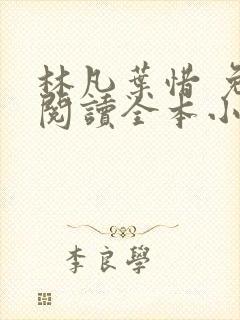 林凡葉惜 免
閱讀全本小
李良學